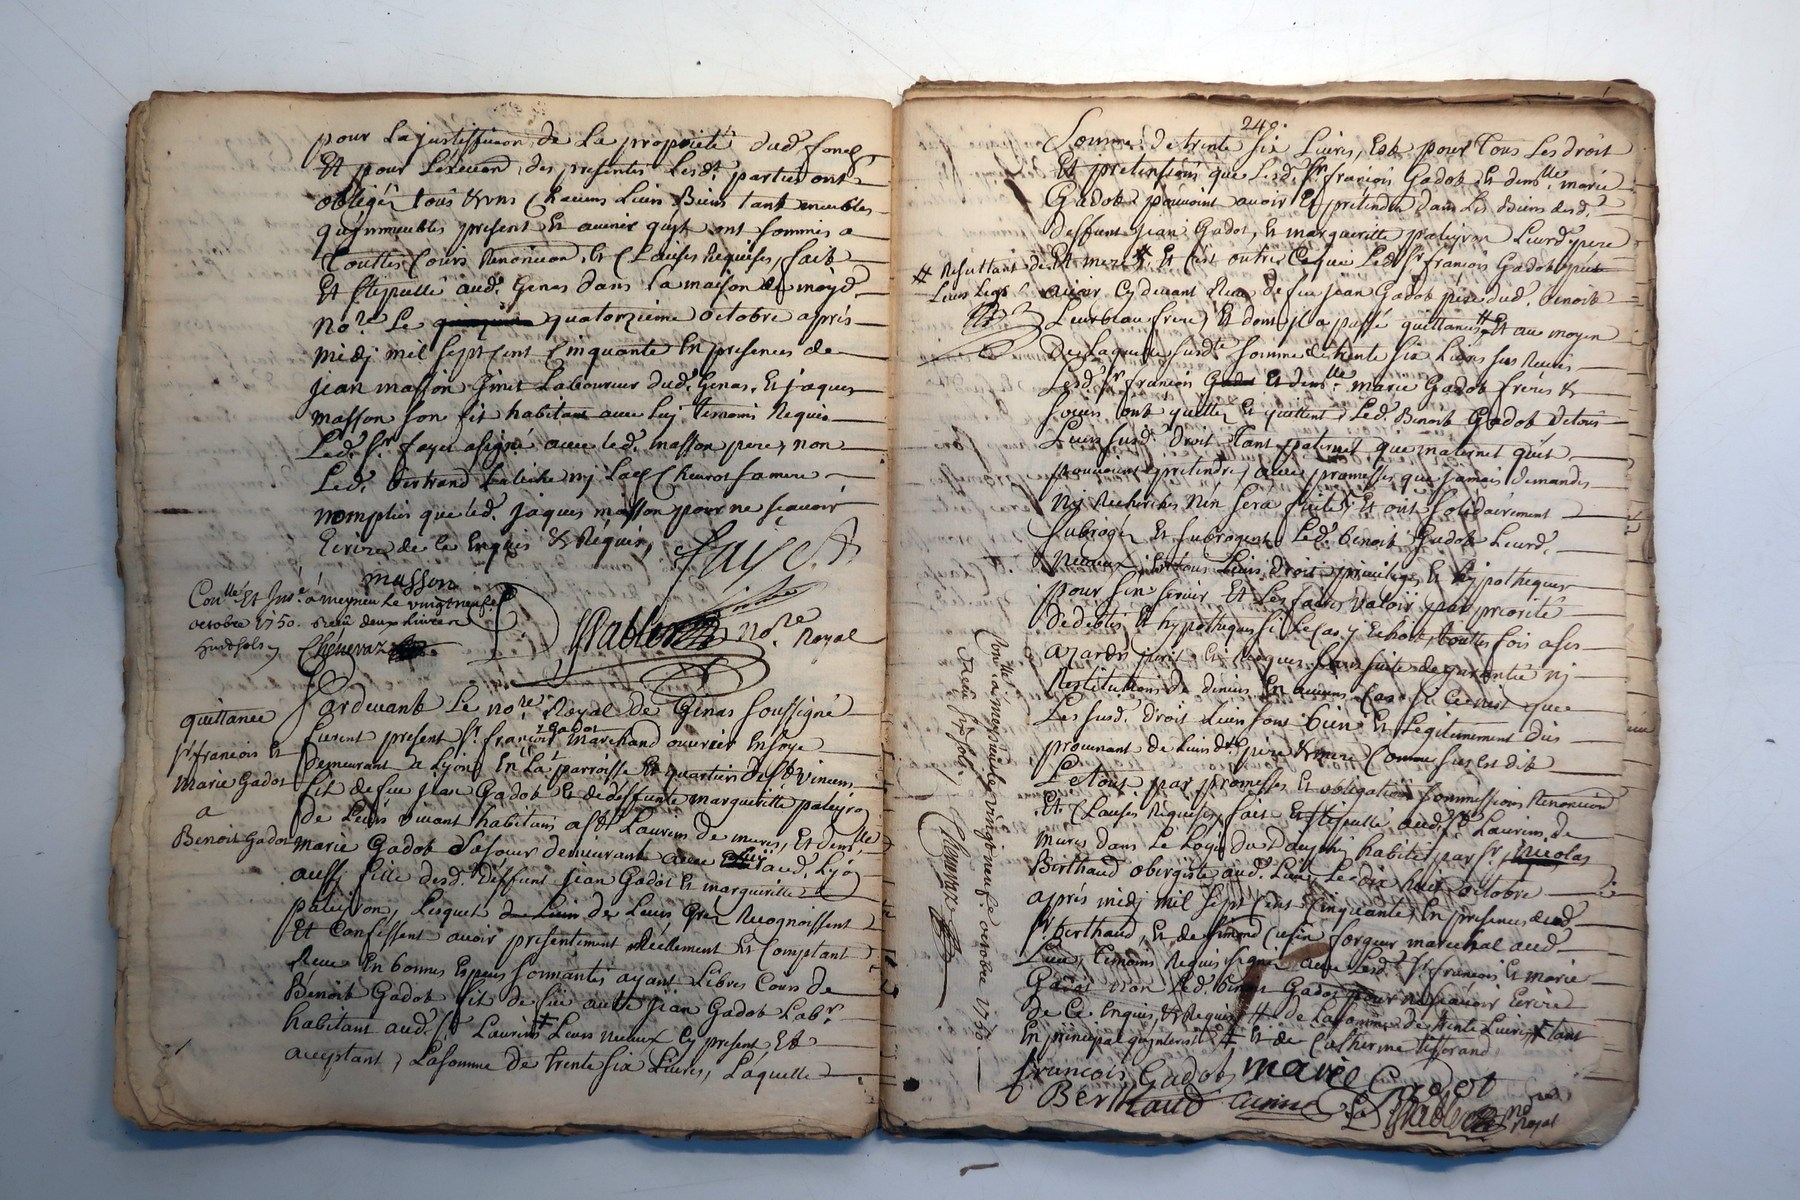 pour La justiffi͠on de La propriété dud. fond
Et pour Lexecu͠on des presentes Lesd. parties ont
obligé tous & uns Chacuns Leurs Biens tant meubles
qu'immeubles present Et avenir qu'ils ont soumis a
Touttes Cours Renon͠on, Et Clauses Requises, fait
Et stipullé aud. Genas dans la maison de moyd.
No.re Le quatorzieme octobre après
midj mil sept Cent Cinquante En presences de
jean masson Laboureur dud. Genas, Et jaques
masson son fil habitant avec Luj temoins Requis
Led. Sr. fayet a signé avec led. masson pere, non
Led. bertrand nj sa mere
nomplus que led. jaques masson pour ne sçavoir
Ecrire de ce Enquis & Requis,
fayet
masson
Con.llé Et Ins.é a meyzieu Le vingt neufe
octobre 1750. Receu deux Livres
huit sols
Chenevaz
no.re Royal
quittance
Sr. francois Et
Marie Gadot
a
Benoit Gadot
Pardevant Le no.re Royal de Genas soussigné
furent present Sr. francois Gadot marchand ouvrier En soye
Demeurant a Lyon En La parroisse Et quartier de St. vincent
fil de feu jean Gadot Et de deffunte margueritte paleyron
de Leurs vivant habitans a St. Laurens de mures, Et dem.lle
marie Gadot sa soeur demeurant avec Luy aud. Lyon
aussy fille desd. deffunt jean Gadot Et margueritte
paleyron, Lesquel de Leurs Gré Recognoissent
Et Confessent avoir presentement réellement Et Comptant
Receu En bonnes Especes sonnantes ayant Libres Cours de
Benoit Gadot fil de feu autre jean Gadot Lab.r
habitant aud. St. Laurens Leurs neveux Cy present Et
acceptant, La somme de trente six Livres, Laquelle
249.
Somme de trente six Livres, Est pour Tous Les droit
Et pretentions que Lesd. Sr. francois Gadot Et dem.lle marie
Gadot pouvoint avoir Et pretendre dans Les Biens desd.
deffunt jean Gadot, Et margueritte paleyron Leurd. pere
Et mere # Et C'est outre Ceque Led. Sr. francois Gadot
# Resultant de
Leurs Legs
avoir Cy devant Receu de feu jean Gadot pere dud. benoit
Leur beau frere, Et dont il a passé quittance # Et au moyen
De Laquelle susd. somme de trente six Livres sus Receu
Lesd. Sr. francois Gadot Et dem.lle marie Gadot freres &
soeur ont quitté Et quittent Led. Benoit Gadot de tous
Leurs susd. droit Tant paternel que maternel qu'ils
pouvoient pretendre, avec promesses que jamais demandes
Nj Recherches N'en sera faites, Et ont solidairement
subrogé Et subrogent Led. benoit Gadot Leurd.
neveux En tous Leurs droit privileges Et hypotheques
pour s'en servir Et Les faire valoir par priorité
de debtes Et hypotheques si Le Cas y Echoit, toutes fois a ses
azards peril Et Risques sans suite de garentie nj
Restitutions de deniers En aucuns Cas si Ce n'est que
Les susd. droit Leurs sont bien Et Legitimement dûs
provenant de Leursd. pere & mere Comme sus est dit
Le tout par promesses Et obligation soummissions Renon͠on
Et Clauses Requises, fait Et stipullé aud. St. Laurens de
mures dans Le Logis du Dauphin habité par Sr. nicolas
Berthaud obergiste aud. Lieu, Le dix huit octobre
après midj mil sept Cent Cinquante, En presences dud.
Sr. Berthaud, Et de simond Cusin forgeur marechal aud.
Lieu, temoins Requis signé avec Lesd. Sr. francois Et marie
Gadot non Led. benoit Gadot pour ne sçavoir Ecrire
De Ce Enquis & Requis # de La somme de trente Livres tant
En principal qu'interest # Et de Catherine tisserand
Con.llé a meyzieu le vingt neufe octobre 1750.
Receu six sols, Chenevaz
francois Gadot marie Gadot
Berthaud cusin
no.re Royal